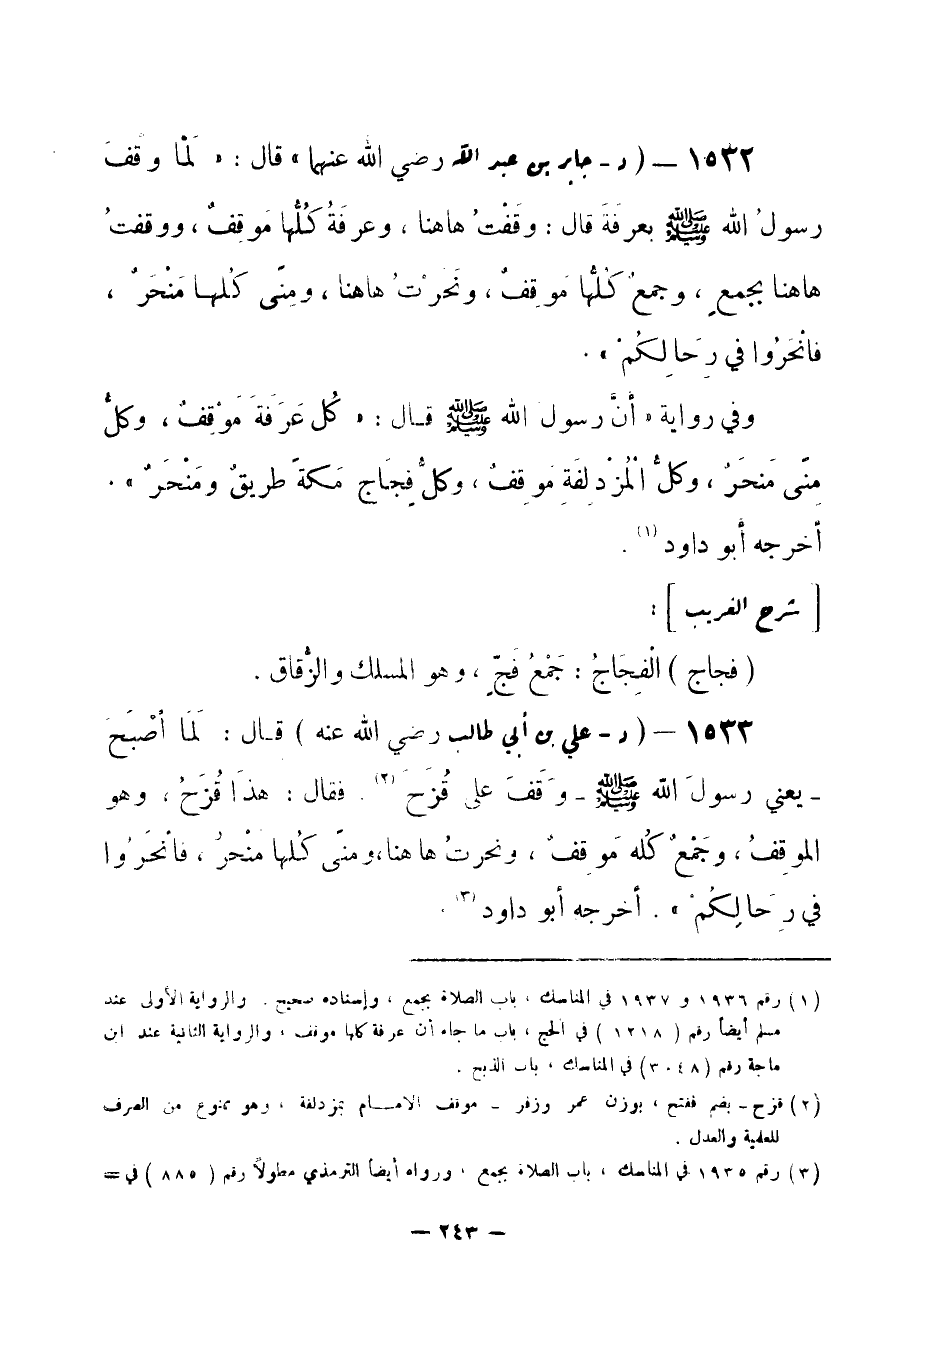 ١٥٣٢ — ( د - جابر بن عبد الله رضي الله عنهما » قال : « لَمَّا وقَفَ
رسولُ الله ﷺ بعرفَةَ قال : وقَفْتُ هاهنا ، وعرفَةُ كُلُّها مَوقِفٌ ، ووقفتُ
هاهنا بجمعٍ ، وجمعٌ كُلُّها مَوقِفٌ ، ونَحَرْتُ هاهنا ، ومِنًى كُلهـا مَنْحَرٌ ،
فانْحَرُوا في رِحَالِكُمْ » .
وفي رواية « أنَّ رسولَ الله ﷺ قـال : « كُل عَرَفَةَ مَوْقِفٌ ، وكلُّ
مِنًى مَنحَرٌ ، وكلُّ الْمُزْدَلِفَةِ مَوقِفٌ ، وكلُّ فِجَاجِ مَكةَ طريقٌ ومَنْحَرٌ » .
أخرجه أبو داود (١) .
[ شرح الغريب ] :
( فجاج ) الْفِجَاجُ : جَمْعُ فَجّ ٍ ، وهو المسلك والزُّقاق .
١٥٣٣ — ( د - علي بن أبي طالب رضي الله عنه ) قـال : لَمَا أصْبَحَ
ـ يعني رسولَ الله ﷺ ـ وَقَفَ على قُزَحَ (٢) . فقال : هذا قُزَحُ ، وهو
الموقِفُ ، وجَمْعٌ كُله مَوقِفٌ ، ونحرتُ هاهنا،ومنًى كُلها منْحرٌ ، فانْحَرُوا
في رِحَالِكُمْ » . أخرجه أبو داود (٣) .
(١) رقم ١٩٣٦ و ١٩٣٧ في المناسك ، باب الصلاة بجمع ، وإسناده صحيح . والرواية الأولى عند
مسلم أيضاً رقم ( ١٢١٨ ) في الحج ، باب ما جاء أن عرفة كلها موقف ، والرواية الثانية عند ابن
ماجة رقم (٣٠٤٨) في المناسك ، باب الذبح .
(٢) قزح - بضم ففتح ، بوزن عمر وزفر - موقف الامـــام بمزدلفة ، وهو ممنوع من الصرف
للعلمية والعدل .
(٣) رقم ١٩٣٥ في المناسك ، باب الصلاة بجمع ، ورواه أيضاً الترمذي مطولاً رقم ( ٨٨٥ ) في =
— ٢٤٣ —